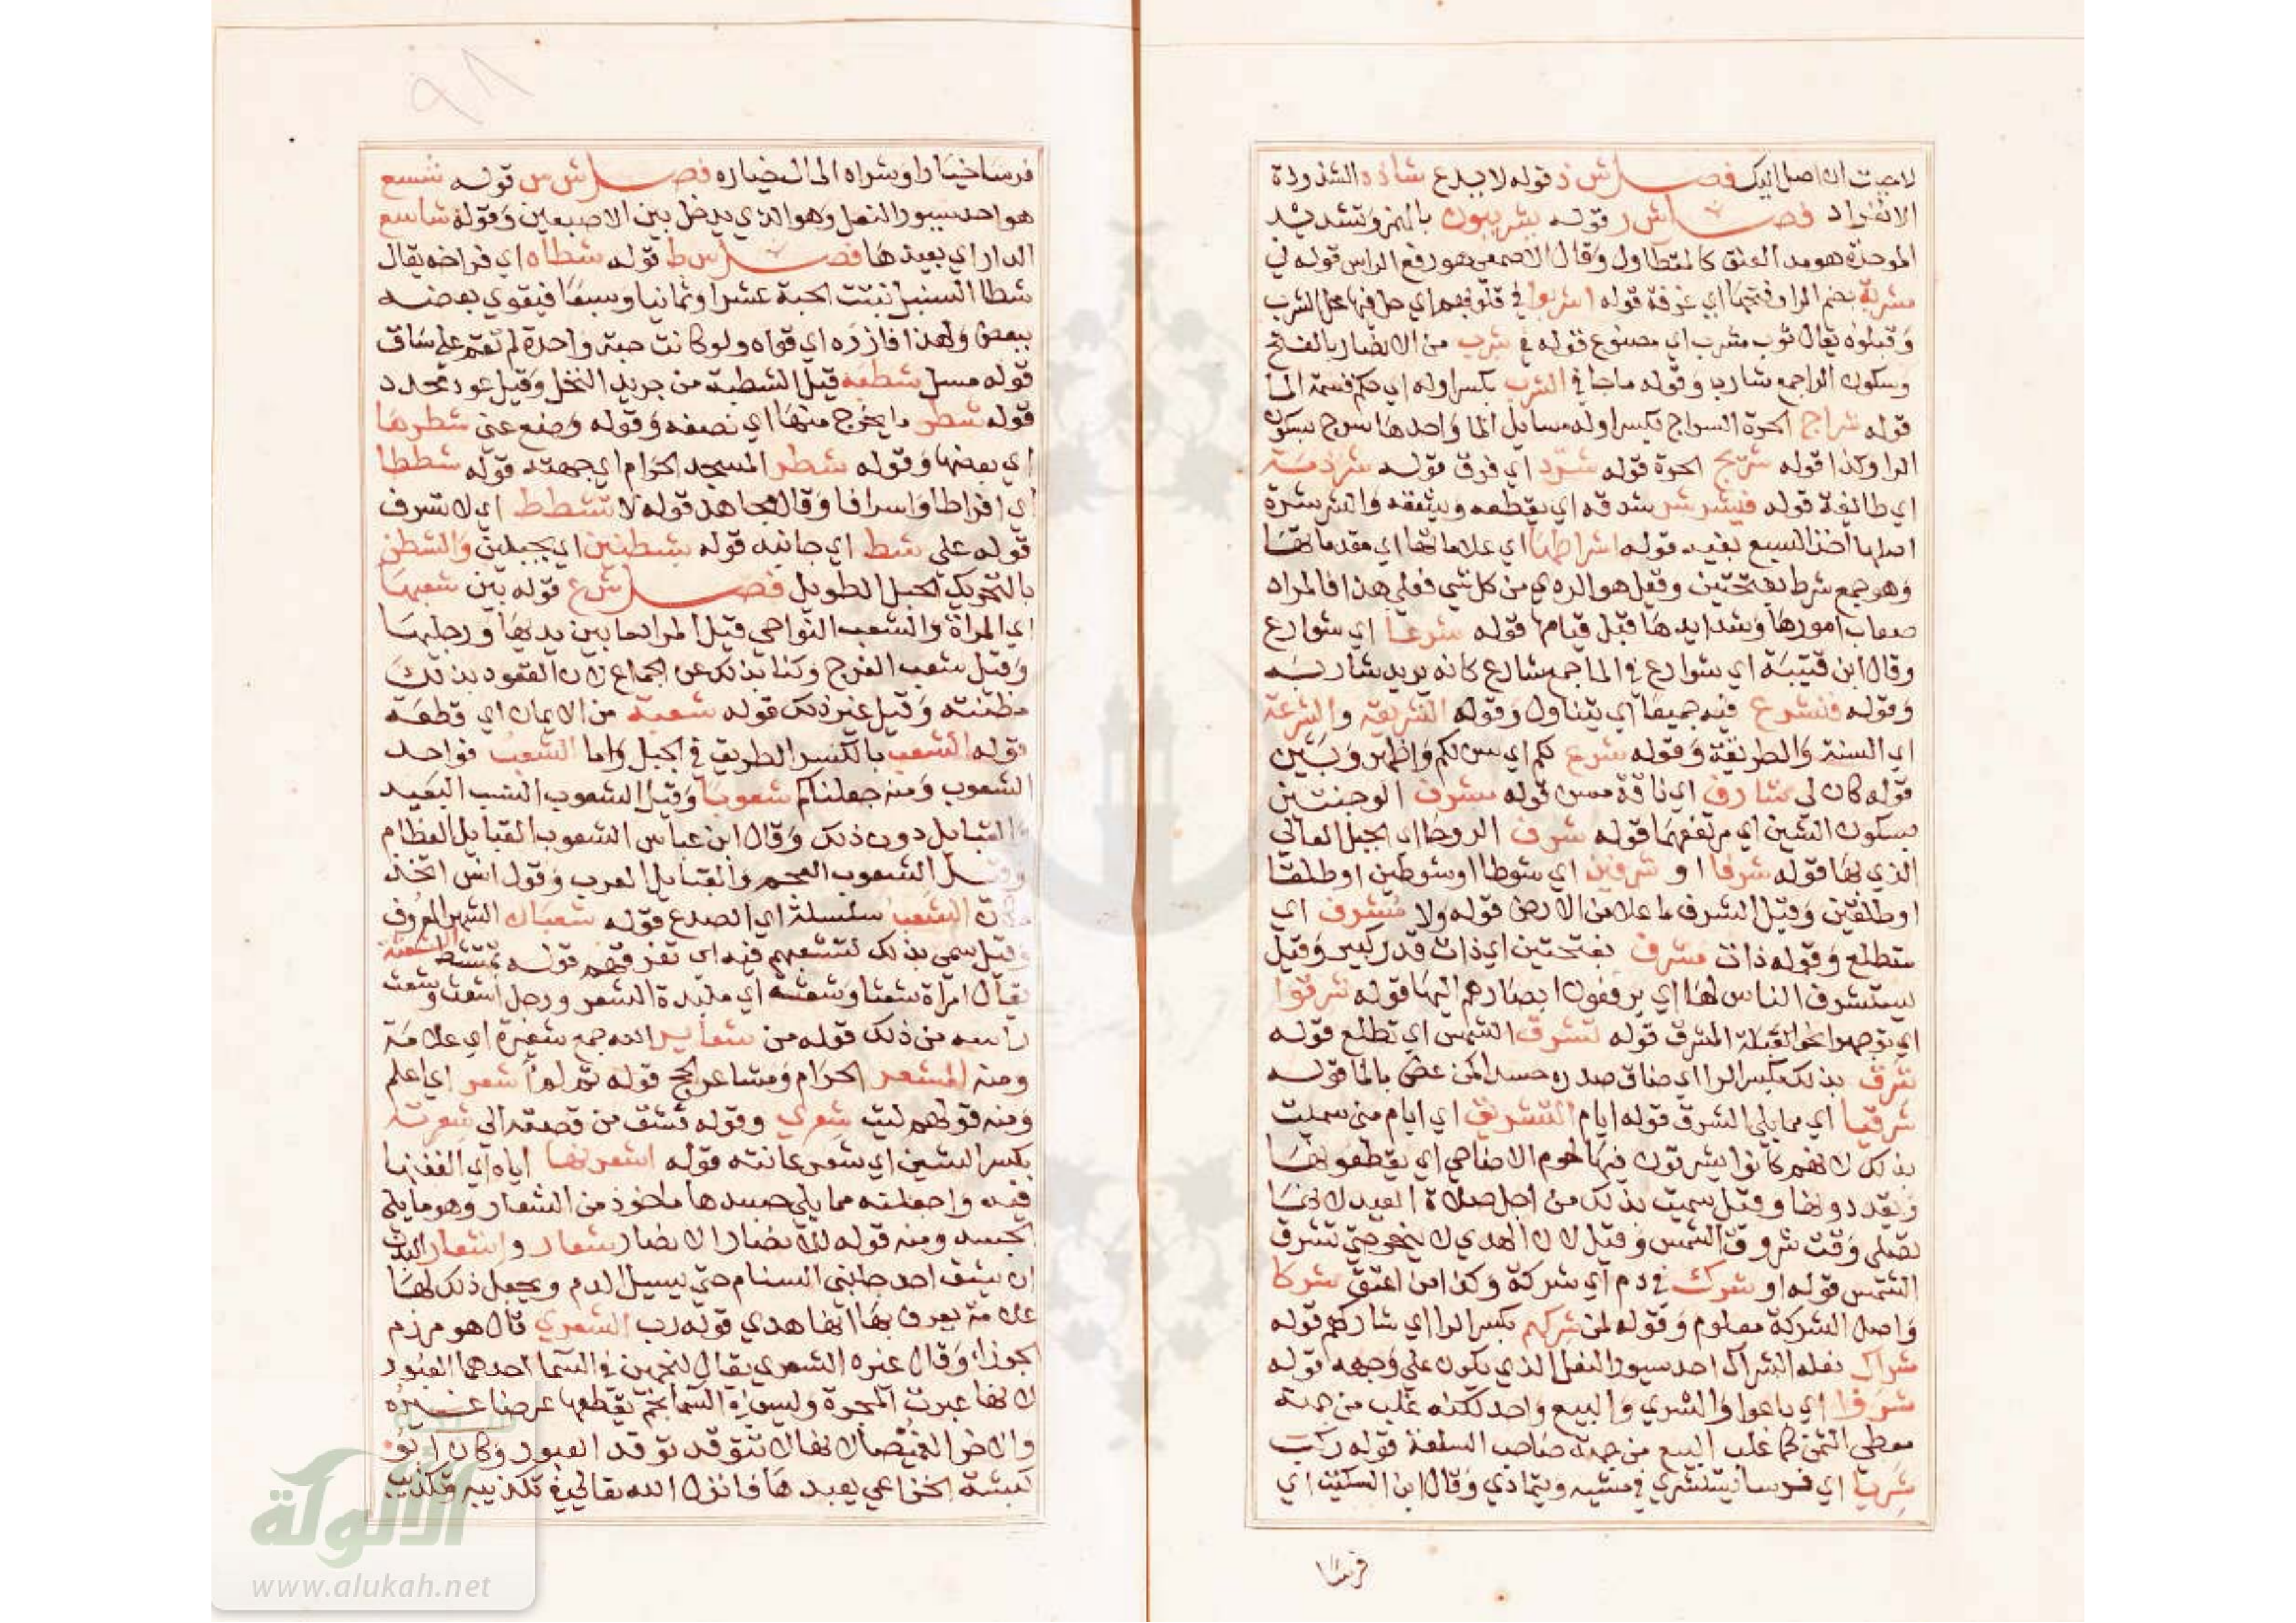 لاحببت ان اصل اليك فصل ش ذ قوله لا يدع شاذة الشذوذة
الانفراد فصل ش ر قوله يشرئبون بالهمز وتشديد
الموحدة هو مد العنق كالمتطاول وقال الاصمعي هو رفع الراس قوله في
مشربة بضم الرا وفتحها اي غرفة قوله اشربوا في قلوبهم اي حل فيها محل الشرب
وقبلوه يقال ثوب مشرب اي مصبوغ قوله في شرب من الانصار بالفتح
وسكون الراجمع شارب وقوله ماجا في الشرب بكسر اوله اي حكم قسمة الما
قوله شراج الحرة السراج بكسر اوله مسايل الما واحدها سرج بسكون
الرا وكذا قوله شريج الحرة قوله شرد اي فرق قوله شرذمة
اي طائفة قوله فيشرشر شدقه اي يقطعه ويشقه والشرشرة
اصلها اخذ السبع بفيه قوله اشراطها اي علاماتها اي مقدماتها
وهو جمع شرط بفتحتين وقيل هو الردي من كل شي فعلى هذا فالمراد
صعاب امورها وشدايدها قبل قيامها قوله شرعا اي شوارع
وقال ابن قتيبة اي شوارع في الما جمع شارع كانه يريد شاربه
وقوله فنشرع فيه جميعا اي نتناول وقوله الشريعة والشرعة
اي السنة والطريقة وقوله شرع لكم اي سن لكم واظهر وبين
قوله كان لي شارف اي ناقة مسن قوله مشرف الوجنتين
بسكون الشين اي مرتفعهما قوله شرف الروحا اي الجبل العالي
الذي بها قوله شرفا او شرفين اي شوطا او شوطين او طلقا
او طلقين وقيل الشرف ما علا من الارض قوله ولا تشرف اي
ستطلع وقوله ذات شرف بفتحتين اي ذات قدر كبير وقيل
يستشرف الناس لها اي يرفعون ابصارهم اليها قوله شرقوا
اي توجهوا نحو القبلة المشرق قوله لتشرق الشمس اي تطلع قوله
شرق بذلك بكسر الرا اي ضاق صدره حسدا كمن غص بالما قوله
شرقيا اي مما يلي الشرق قوله ايام التشريق اي ايام منى سميت
بذلك لانهم كانوا يشرقون فيها لحوم الاضاحي اي يقطعونها
ويقددونها وقيل سميت بذلك من اجل صلاة العيد لانها
تصلى وقت شروق الشمس وقيل لان الهدي لا ينحر حتى تشرق
الشمس قوله او شرك في دم اي شركة وكذا من اعتق شركا
واصل الشركة معلوم وقوله لمن شركهم بكسر الرا اي شاركهم قوله
شراك نعله الشراك احد سيور النعل الذي يكون على وجهه قوله
شروا اي باعوا والشري والبيع واحد لكنه غلب من جهة
معطي الثمن كما غلب البيع من جهة صاحب السلعة قوله ركب
شريا اي فرسا يستشري في مشيه ويتمادى وقال ابن السكيت اي
فرسا
فرسا خيارا وشراه المال خياره فصل ش س قوله شسع
هو احد سيور النعل وهو الذي يدخل بين الاصبعين وقوله شاسع
الدار اي بعيدها فصل ش ط قوله شطاه اي فراخه يقال
شطا السنبل تنبت الحبة عشرا وثمانيا وسبعا فيقوي بعضه
ببعض ولهذا فازره اي قواه ولو كانت حبة واحدة لم تقم على ساق
قوله مسل شطبه قيل الشطبة من جريد النخل وقيل عود محدد
قوله شطر ما يخرج منها اي نصفه وقوله وضع عني شطرها
اي بعضها وقوله شطر المسجد الحرام اي جهته قوله شططا
اي افراطا واسرافا وقال مجاهد قوله لا تشطط اي لا تسرف
قوله على شط اي جانبه قوله بشطنين اي بحبلين والشطن
بالتحريك الحبل الطويل فصل ش ع قوله بين شعبها
اي المراة والشعب النواحي قيل المراد ما بين يديها ورجليها
وقيل شعب الفرج وكنا بذلك عن الجماع لان القعود بذلك
مظنته وقيل غير ذلك قوله شعبة من الايمان اي قطعة
قوله الشعب بالكسر الطريق في الجبل واما الشعب فواحد
الشعوب ومنه جعلناكم شعوبا وقيل الشعوب النسب البعيد
والقبايل دون ذلك وقال ابن عباس الشعوب القبايل العظام
وقيل الشعوب العجم والقبايل العرب وقول انس اتخذ
مكان الشعب سلسلة اي الصدع قوله شعبان الشهر المعروف
وقيل سمي بذلك لتشعبهم فيه اي تفرقهم قوله تمتشط الشعثة
يقال امراة شعثا وشعثه اي ملبدة الشعر ورجل اشعث وشعث
راسه من ذلك قوله من شعاير الله جمع شعيرة اي علامة
ومنه المشعر الحرام ومشاعر الحج قوله ثم لم اشعر اي اعلم
ومنه قولهم ليت شعري وقوله فشق من قصه الى شعرته
بكسر الشين اي شعر عانته قوله اشعرنها اياه اي الففنها
فيه واجعلنه مما يلي جسدها ماخوذ من الشعار وهو ما يلي
الجسد ومنه قوله للانصار الانصار شعار واشعار البدن
ان يشق احد جنبي السنام حتى يسيل الدم ويجعل ذلك لها
علامة يعرف بها انها هدي قوله رب الشعرى قال هو مرزم
الجوزا وقال غيره الشعرى يقال لنجمين في السما احدهما العبور
لانها عبرت المجرة وليس في السما نجم يقطعها عرضا غيره
والاخر الغميصا لانها لا تتوقد توقد العبور وكان ابو
كبشة الخزاعي يعبدها فانزل الله تعالى في تكذيبه وتكذيب
٩٨
الألوكة
www.alukah.net